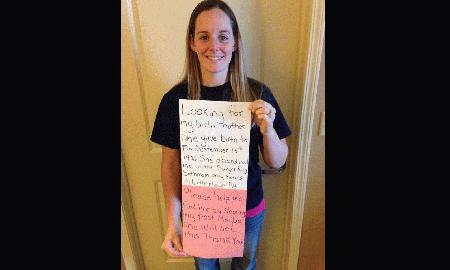 Looking for
my birth mother
She gave birth to
me September 15th
1986 She abandoned
me in the Burger King
bathroom only hours
old, Allentown PA
Please help me
find her by sharing
my post Maybe
she will see
this Thank You